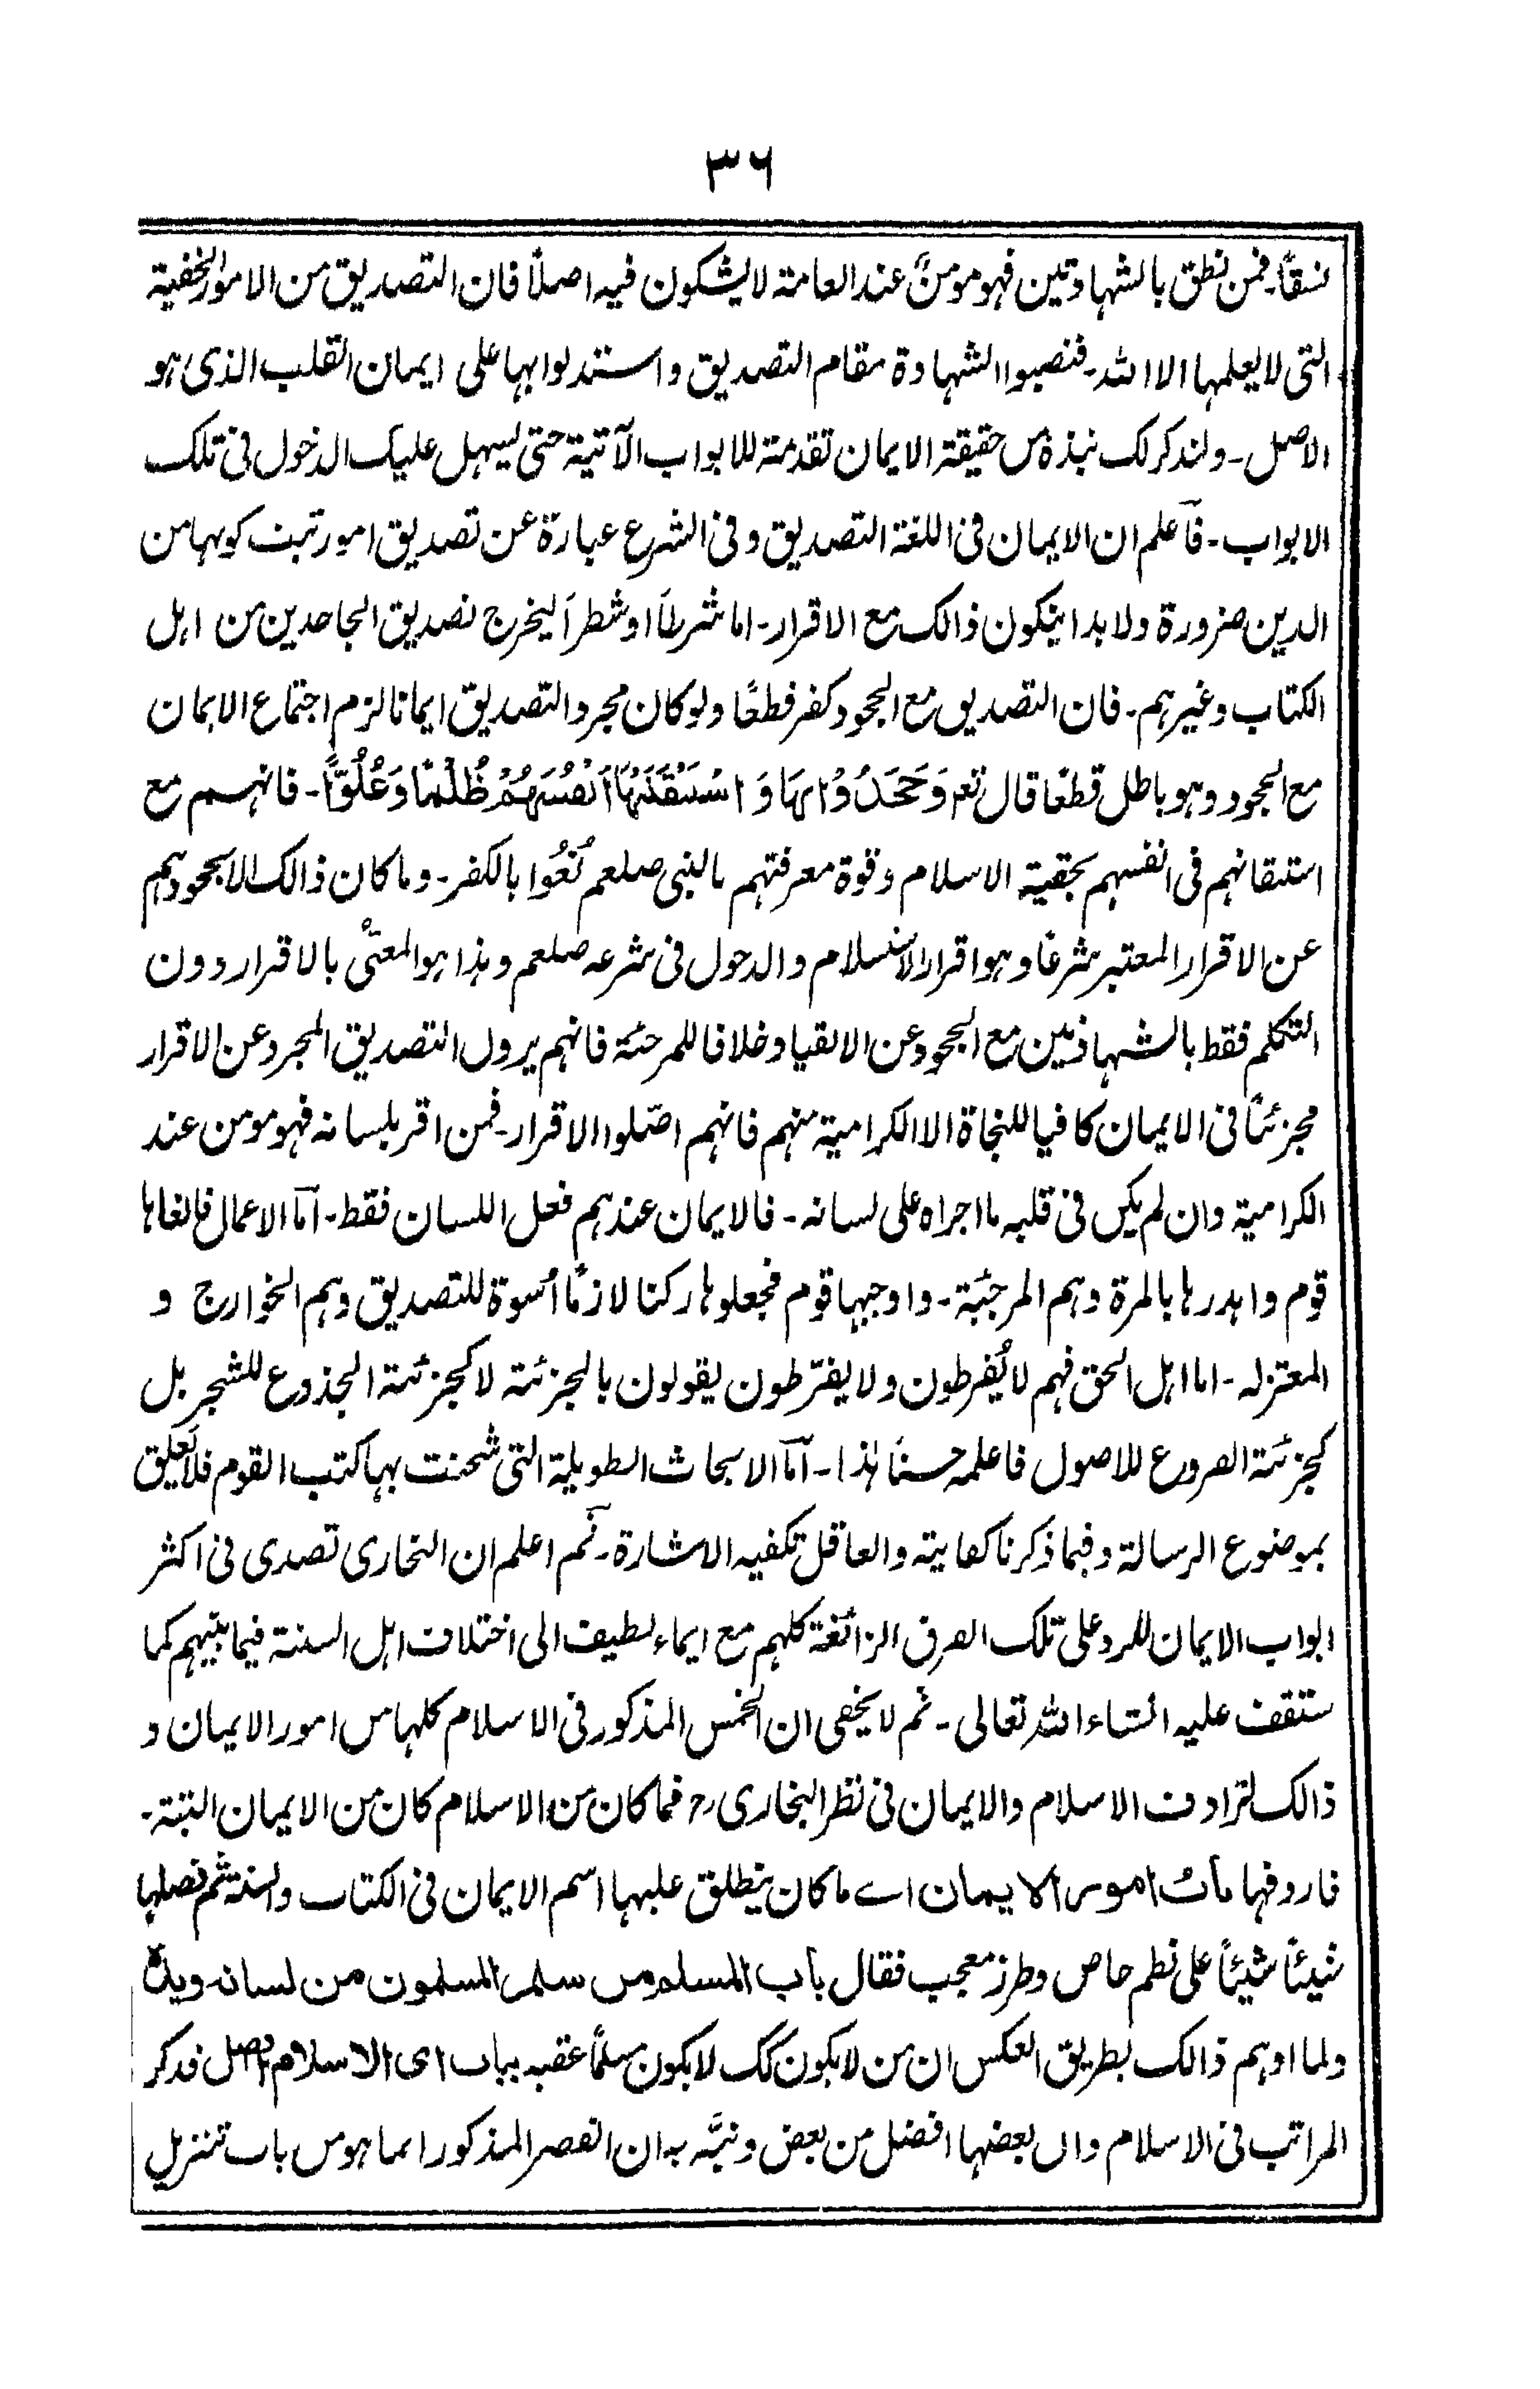 ٣٦
نسقاً۔ فمن نطق بالشهادتين فهو مومنٌ عند العامة لا يشكون فيه اصلاً فان التصديق من الامور الخفية
التى لا يعلمها الا الله۔ فنصبوا الشهادة مقام التصديق واستدلوا بها على ايمان القلب الذى هو
الاصل۔ ولنذكر لك نبذة من حقيقة الايمان تقدمة للابواب الآتية حتى يسهل عليك الدخول فى تلك
الابواب۔ فآعلم ان الايمان فى اللغة التصديق و فى الشرع عبارة عن تصديق امور ثبت كونها من
الدين ضرورة ولا بد اينكون ذالك مع الاقرار۔ اما شرطاً او شطراً ليخرج تصديق الجاحدين من اهل
الكتاب وغيرهم۔ فان التصديق مع الجحود كفر قطعًا ولو كان مجرد التصديق ايمانا لزم اجتماع الايمان
مع الجحود وهو باطل قطعًا قال تعه وَجَحَدُوْا بِهَا وَاسْتَيْقَنَتْهَا اَنْفُسُهُمْ ظُلْمًا وَعُلُوًّا۔ فانهم مع
استيقانهم فى انفسهم بحقية الاسلام وقوة معرفتهم بالنبى صلعم نُعُوا بالكفر۔ وما كان ذالك الا بجحودهم
عن الاقرار المعتبر شرعًا وهو اقرار الاستسلام والدخول فى شرعه صلعم وهذا هو المعنّى بالاقرار دون
التكلم فقط بالشهادتين مع الجحود عن الانقياد خلافا للمرجئة فانهم يرون التصديق المجرد عن الاقرار
مجزئًا فى الايمان كافيا للنجاة الا الكرامية منهم فانهم اصّلوا الاقرار۔ فمن اقر بلسانه فهو مومن عند
الكرامية وان لم يكن فى قلبه ما اجراه على لسانه۔ فالايمان عندهم فعل اللسان فقط۔ اَمّا الاعمال فالغاها
قوم واهدرها بالمرة وهم المرجئة۔ واوجبها قوم فجعلوها ركنا لازمًا اُسوة للتصديق وهم الخوارج و
المعتزله۔ اما اهل الحق فهم لا يُفرطون ولا يفرّطون يقولون بالجزئة لا كجزئة الجذوع للشجر بل
كجزئة الفروع للاصول فاعلمه حسنًا هٰذا۔ اَمّا الابحاث الطويلة التى شحنت بها كتب القوم فلا تعلق
بموضوع الرسالة وفيما ذكرنا كفاية والعاقل تكفيه الاشارة۔ ثم اعلم ان البخارى تصدى فى اكثر
ابواب الايمان للرد على تلك الفرق الزائغة كلهم مع ايماء لطيف الى اختلاف اهل السنة فيما بينهم كما
ستقف عليه انشاء الله تعالى۔ ثم لا يخفى ان الخمس المذكور فى الاسلام كلها من امور الايمان و
ذالك لترادف الاسلام والايمان فى نظر البخارى رح فما كان من الاسلام كان من الايمان البتة۔
فاردفها باب امور الايمان اے ما كان ينطلق عليها اسم الايمان فى الكتاب والسنة ثم فصلها
شيئاً شيئاً على نظم خاص وطرز معجب فقال باب المسلم من سلم المسلمون من لسانه ويده
ولما اوهم ذالك بطريق العكس ان من لا يكون كك لا يكون مسلمًا عقبه بباب اى الاسلام افضل فذكر
المراتب فى الاسلام وان بعضها افضل من بعض ونبّه به ان القصر المذكور انما هو من باب تنزيل